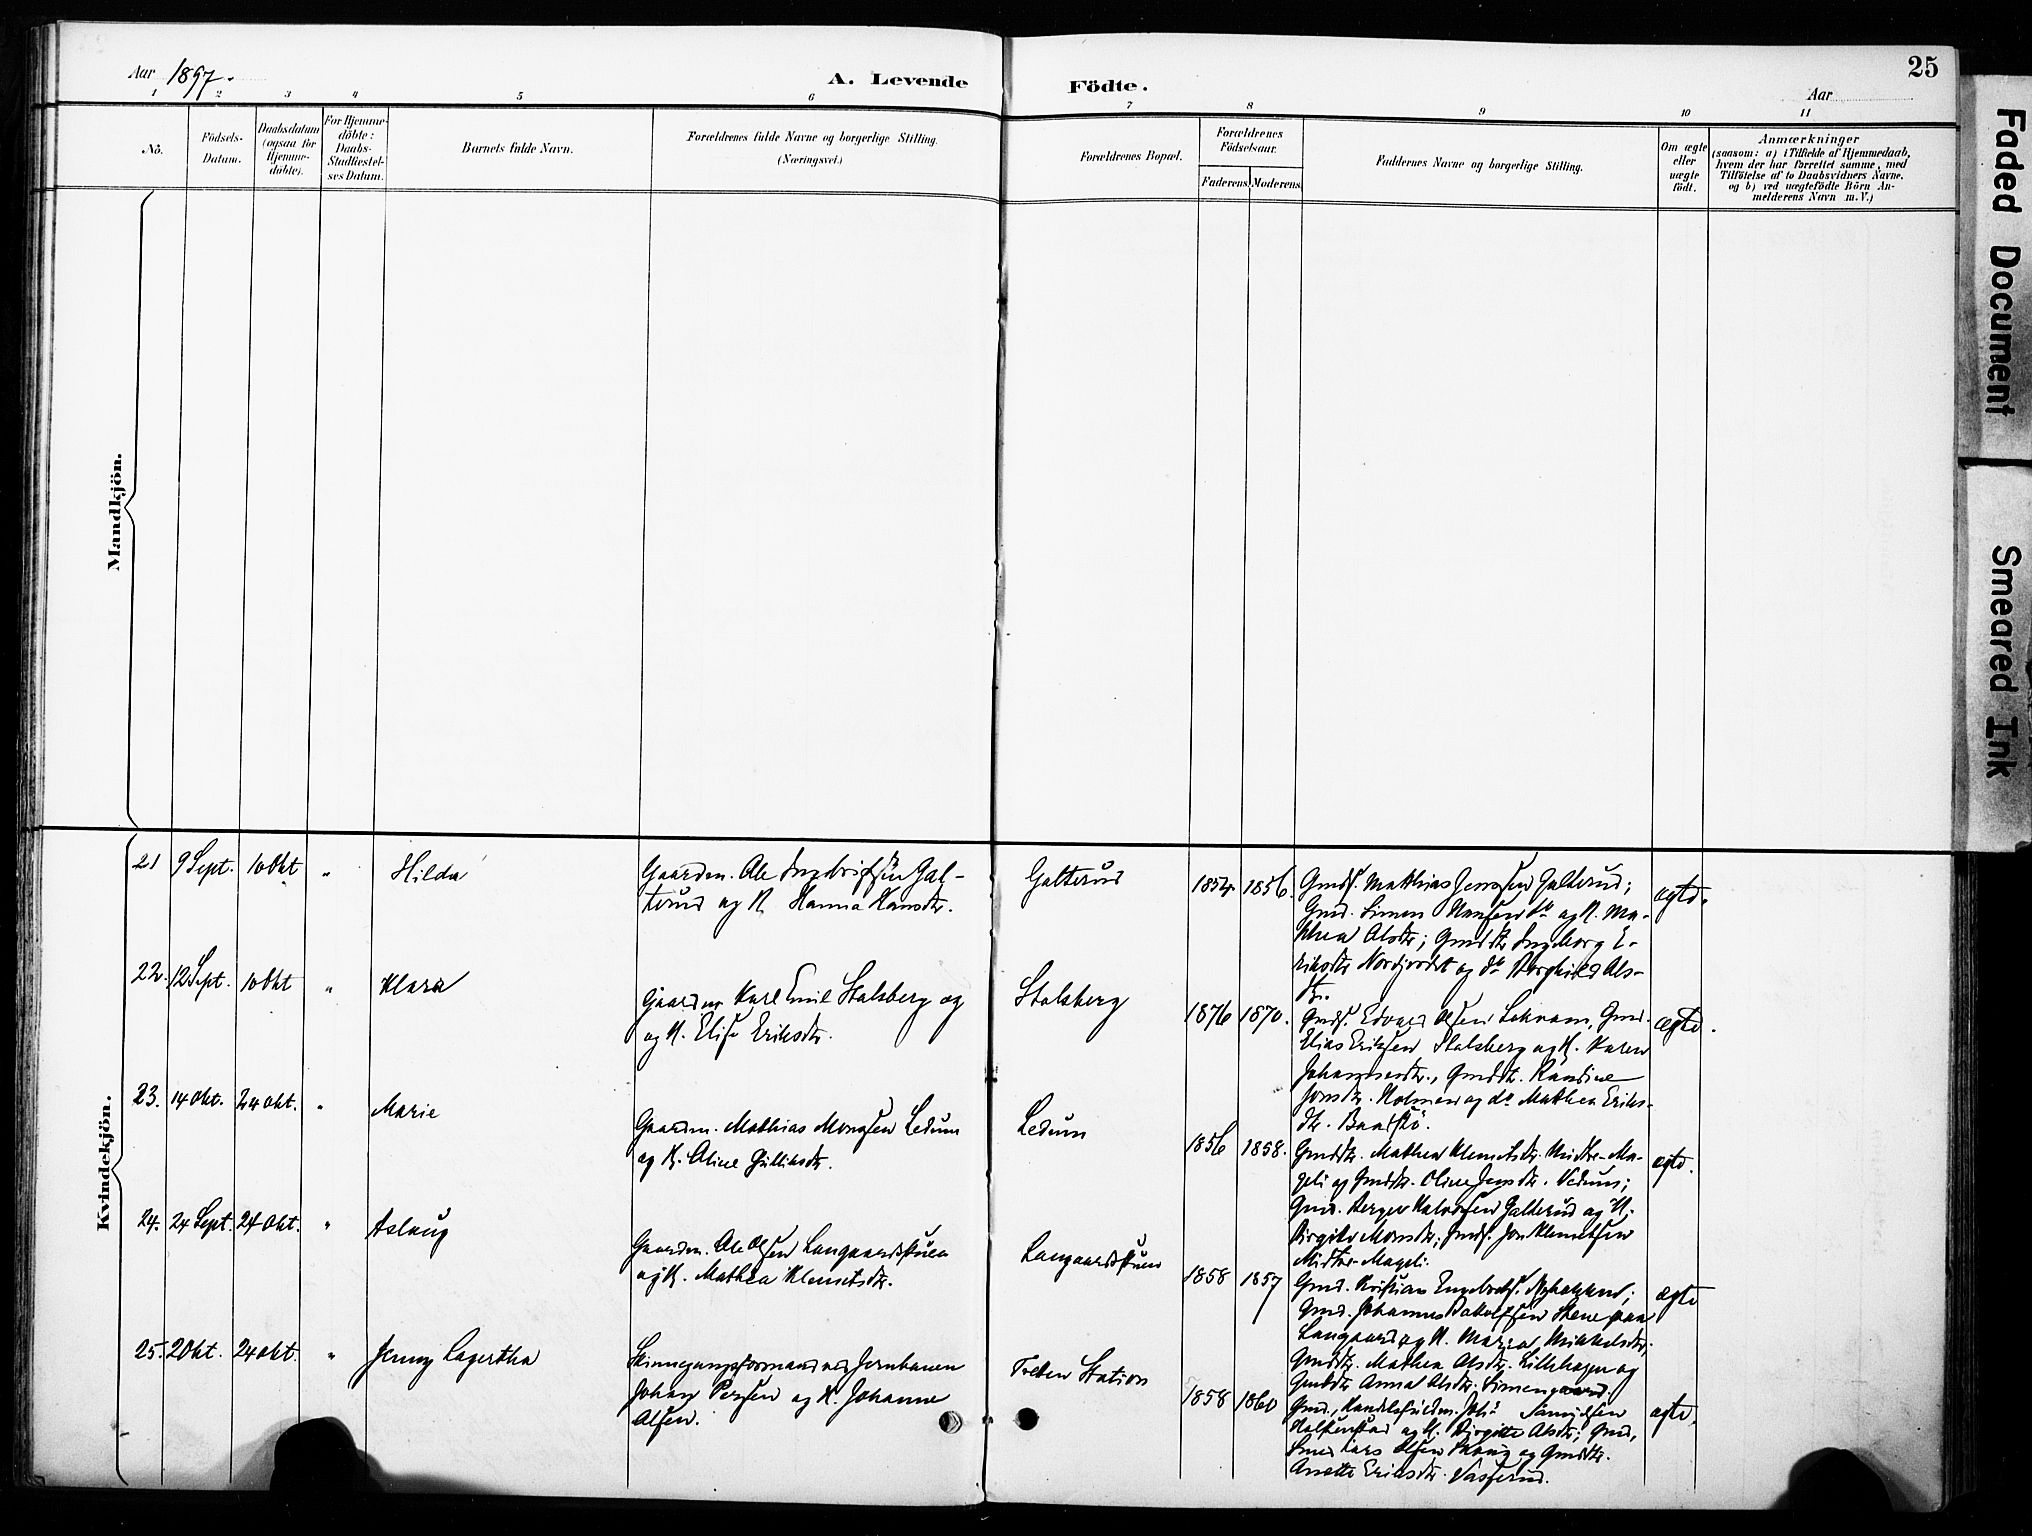 Aar 1897.
A. Levende
Födte.
25
Aar
1 2 3 4 5 6 7 8 9 10 11
Nô.
Födsels-
Datum.
Daabsdatum
(ogsaa for
Hjemme-
döbte).
For Hjemme-
döbte:
Daabs-
Stadfæstel-
ses Datum.
Barnets fulde Navn.
Forældrenes fulde Navne og borgerlige Stilling.
(Næringsvei.)
Forældrenes Bopæl.
Forældrenes
Födselsaar.
Faderens
Moderens
Faddernes Navne og borgerlige Stilling.
Om ægte
eller
uægte
födt.
Anmærkninger
(saasom: a) i Tilfælde af Hjemmedaab,
hvem der har forrettet samme, med
Tilföielse af to Daabsvidners Navne.
og b) ved uægtefödte Börn An-
melderens Navn m.V.)
Mandkjön.
Kvindekjön.
21 9 Sept. 10 Okt " Hilda
Gaardm. Ole Gal-
terud og K. Hanna Hansdtr.
Galterud
1854 1856.
Gmdf. Mathias Jensen Galterud;
Gmd. Simen Hansen do og K. Ma-
thea Olsdtr; Gmddtr Ingeborg E-
riksdtr Nordjordet og do Borghild Ols-
dtr.
ægte.
22. 12 Sept. 10 Okt " Klara
Gaardm Karl Emil Stalsberg og
og K. Elise Eriksdtr.
Stalsberg
1876 1870.
Gmdf. Edvard Olsen Gmd.
Elias Eriksen Stalsberg og K. Karen
Johannesdtr., Gmddtr. Randine
Jonsdtr. Holmen og do Mathea Eriks-
dtr.
ægte.
23. 14 Okt. 24 Okt. " Marie
Gaardm. Mathias Monsen Ledum
og K. Oline Gulliksdtr.
Ledum
1856 1858.
Gmddtr. Mathea Klemetsdtr. Midtre-Ma-
geli og Gmddtr. Oline Jensdtr.
Gmd. Berger Halvorsen Galterud og K.
Birgitte Monsdtr; Gmdf. Jon Klemetsen
Midtre-Mageli.
ægte.
24. 24 Sept. 24 Okt. " Aslaug
Gaardm. Ole Olsen Langaardskuen
og K. Mathea Klemetsdtr.
Langaardskuen
1858 1857
Gmd. Kristian
Gmd. Johannes
Langaard og K. Maria Mikkelsdtr.
Gmddtr. Mathea Olsdtr. Lillehagen og
Gmddtr Anna Olsdtr. Simengaard.
ægte
25. 2 Okt. 24 Okt. " Jenny Lagertha
Skinnegangsformand ved Jernbanen
Johan Persen og K. Johanne
Olsen.
Tretten Station
1858 1860
Gmd.,
og K. Birgitte Olsdtr; Gmd,
Smed Lars Olsen og Gmddtr.
Anette Eriksdtr.
ægte.
Faded Document
Smeared Ink